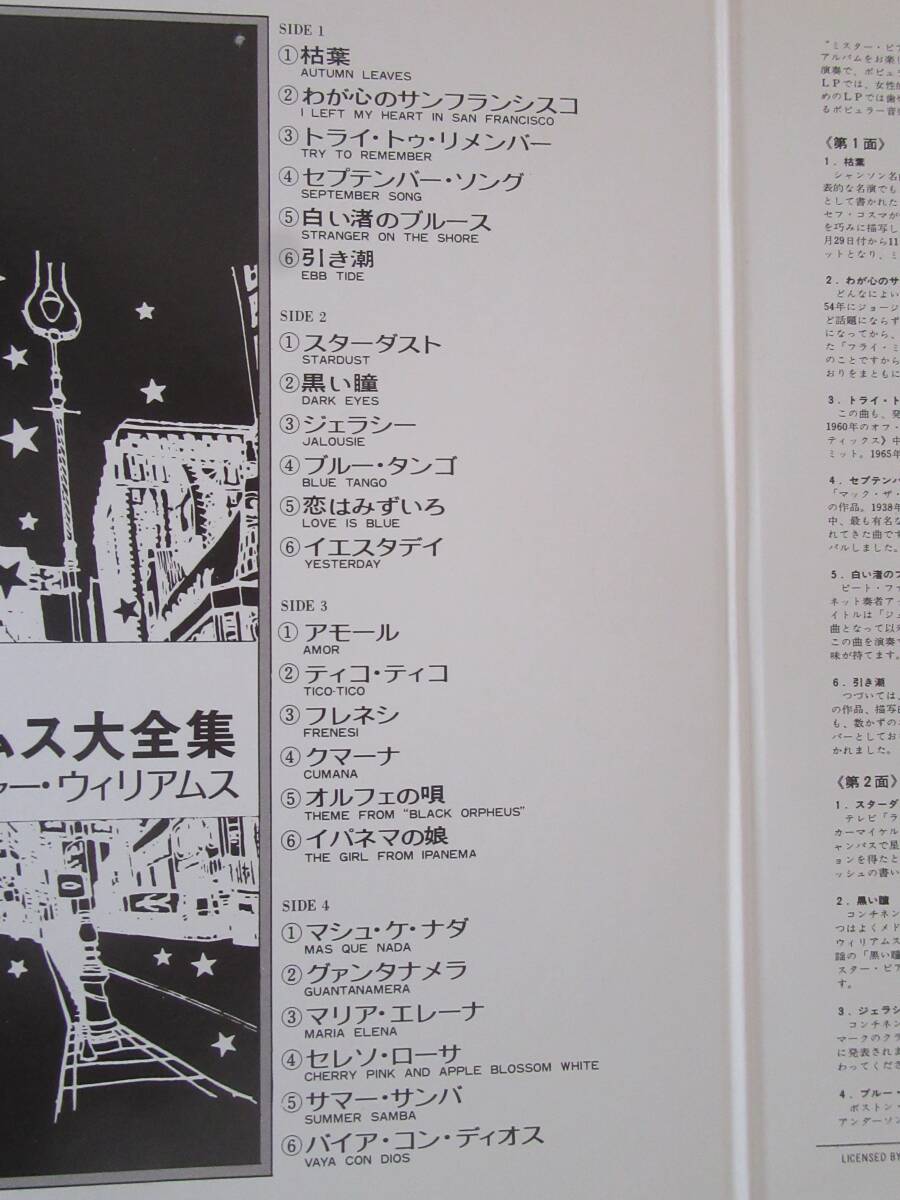 SIDE 1
①枯葉
AUTUMN LEAVES
②わが心のサンフランシスコ
I LEFT MY HEART IN SAN FRANCISCO
③トライ・トゥ・リメンバー
TRY TO REMEMBER
④セプテンバー・ソング
SEPTEMBER SONG
⑤白い渚のブルース
STRANGER ON THE SHORE
⑥引き潮
EBB TIDE
SIDE 2
①スターダスト
STARDUST
②黒い瞳
DARK EYES
③ジェラシー
JALOUSIE
④ブルー・タンゴ
BLUE TANGO
⑤恋はみずいろ
LOVE IS BLUE
⑥イエスタデイ
YESTERDAY
SIDE 3
①アモール
AMOR
②ティコ・ティコ
TICO-TICO
③フレネシ
FRENESI
④クマーナ
CUMANA
⑤オルフェの唄
THEME FROM "BLACK ORPHEUS"
⑥イパネマの娘
THE GIRL FROM IPANEMA
SIDE 4
①マシュ・ケ・ナダ
MAS QUE NADA
②グァンタナメラ
GUANTANAMERA
③マリア・エレーナ
MARIA ELENA
④セレソ・ローサ
CHERRY PINK AND APPLE BLOSSOM WHITE
⑤サマー・サンバ
SUMMER SAMBA
⑥バイア・コン・ディオス
VAYA CON DIOS
ムス大全集
ャー・ウィリアムス
"ミスター・ピア
アルバムをお楽し
演奏で、ポピュラ
LPでは、女性的
めのLPでは歯や
るポピュラー音楽
《第1面》
1. 枯葉
シャンソン名曲
表的な名演でも
として書かれた
セフ・コスマが
を巧みに描写し
月29日付から11
ットとなり、ミ
2. わが心のサ
どんなによい
54年にジョージ
ど話題にならず
になってから、
た「フライ・ミ
のことですから
おりをまともに
3. トライ・ト
この曲も、発
1960年のオフ・
ティックス》中
ミット。1965年
4. セプテンバ
「マック・ザ・
の作品。1938年
中、最も有名な
れてきた曲です
バルしました。
5. 白い渚のブ
ピート・ファ
ネット奏者アッ
イトルは「ジェ
曲となって以来
この曲を演奏で
味が持てます。
6. 引き潮
つづいては、
の作品、描写曲
も、数かずのス
パーとしてお
かれました。
《第2面》
1. スターダ
テレビ「ラ
カーマイケル
ャンパスで星
ョンを得たと
ッシュの書い
2. 黒い瞳
コンチネン
つはよくメド
ウィリアムス
謡の「黒い瞳
スター・ピア
す。
3. ジェラシ
コンチネン
マークのクラ
に発表されま
わってくださ
4. ブルー・
ボストン・
アンダーソン
LICENSED BY